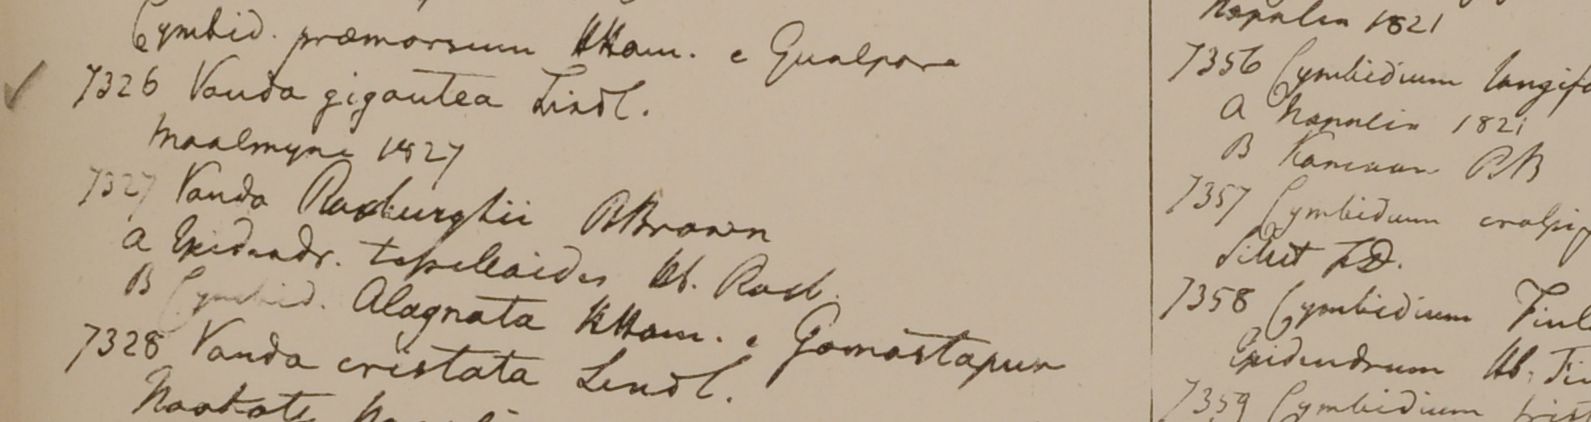 Cymbid. præmorsum HHam. e Gualpara
7326 Vanda gigantea Lindl.
Moalmyne 1827
7327 Vanda Roxburghii RBrown
a Epidendr. tesselloides Hb. Roxb.
B Cymbid. Alagnata HHam. e Gomastapur
7328 Vanda cristata Lindl.
Noakote
Napalia 1821
7356 Cymbidium longifo
a Napalia 1821
B Kamaon RB
7357 Cymbidium crispip
Silhet FD.
7358 Cymbidium Finl
Epidendrum Hb. Fin
7359 Cymbidium trist